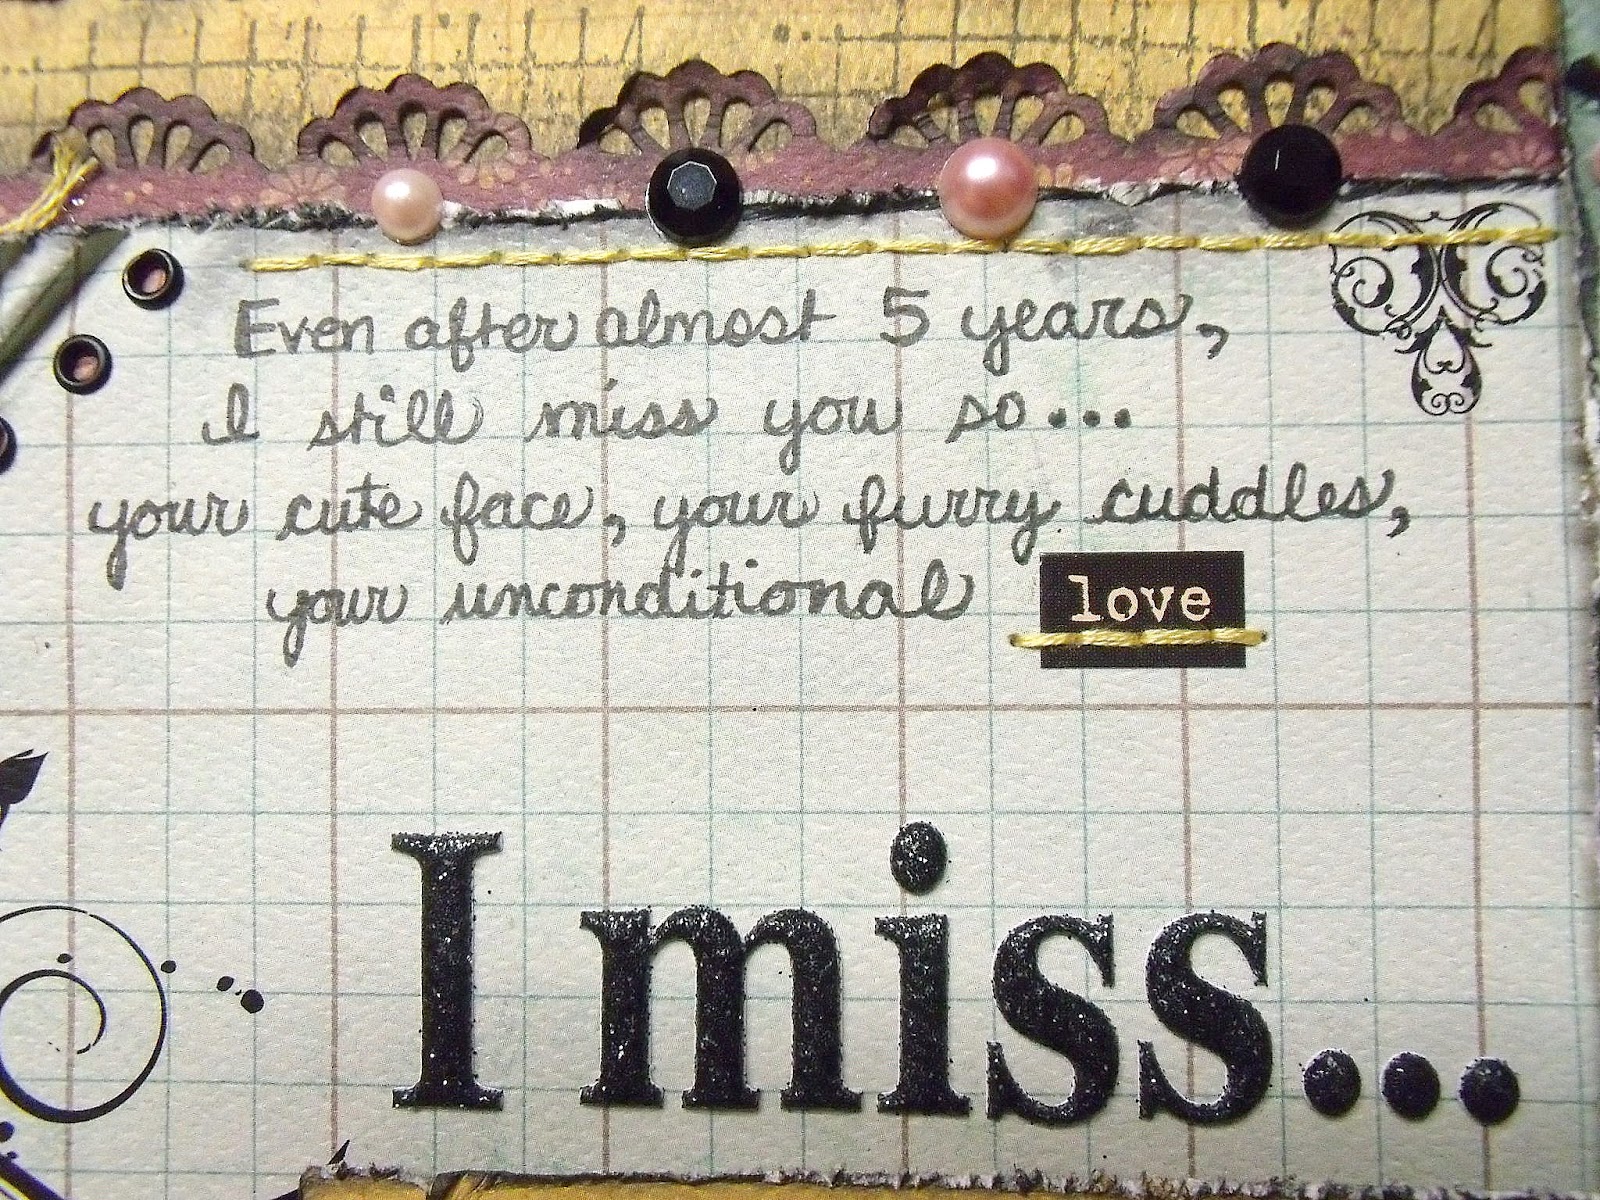 Even after almost 5 years,
I still miss you so...
your cute face, your furry cuddles,
your unconditional love
I miss...